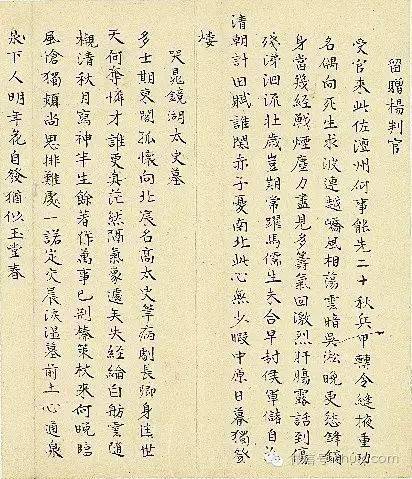 留贈楊判官
受官來此佐澶州何事能先二十秋兵甲轉令縫掖重功
名偶向死生求波連越嶠風相蕩雲暗吳淞晚更愁鋒鏑
身當幾經戰煙塵力盡見多籌氣回激烈肝腸露話到傷
殘涕泗流壯歲豈期常躍馬儒生未合早封侯軍儲自
清朝計田賦誰關赤子憂南北此心無少暇中原日暮獨登
樓
哭晁鏡湖太史墓
多士期東閣孤懷向北宸名高太史筆病劇長卿身佳世
天何奪憐才誰更真茫然隔氣象遽矣失經綸白舫雲隨
櫬清秋月寫神半生餘著作萬事已荊榛策杖來何晚臨
風愴獨頻尚思排難處一諾定交晨淚濕墓前土心通泉
下人明年花自發猶似玉堂春